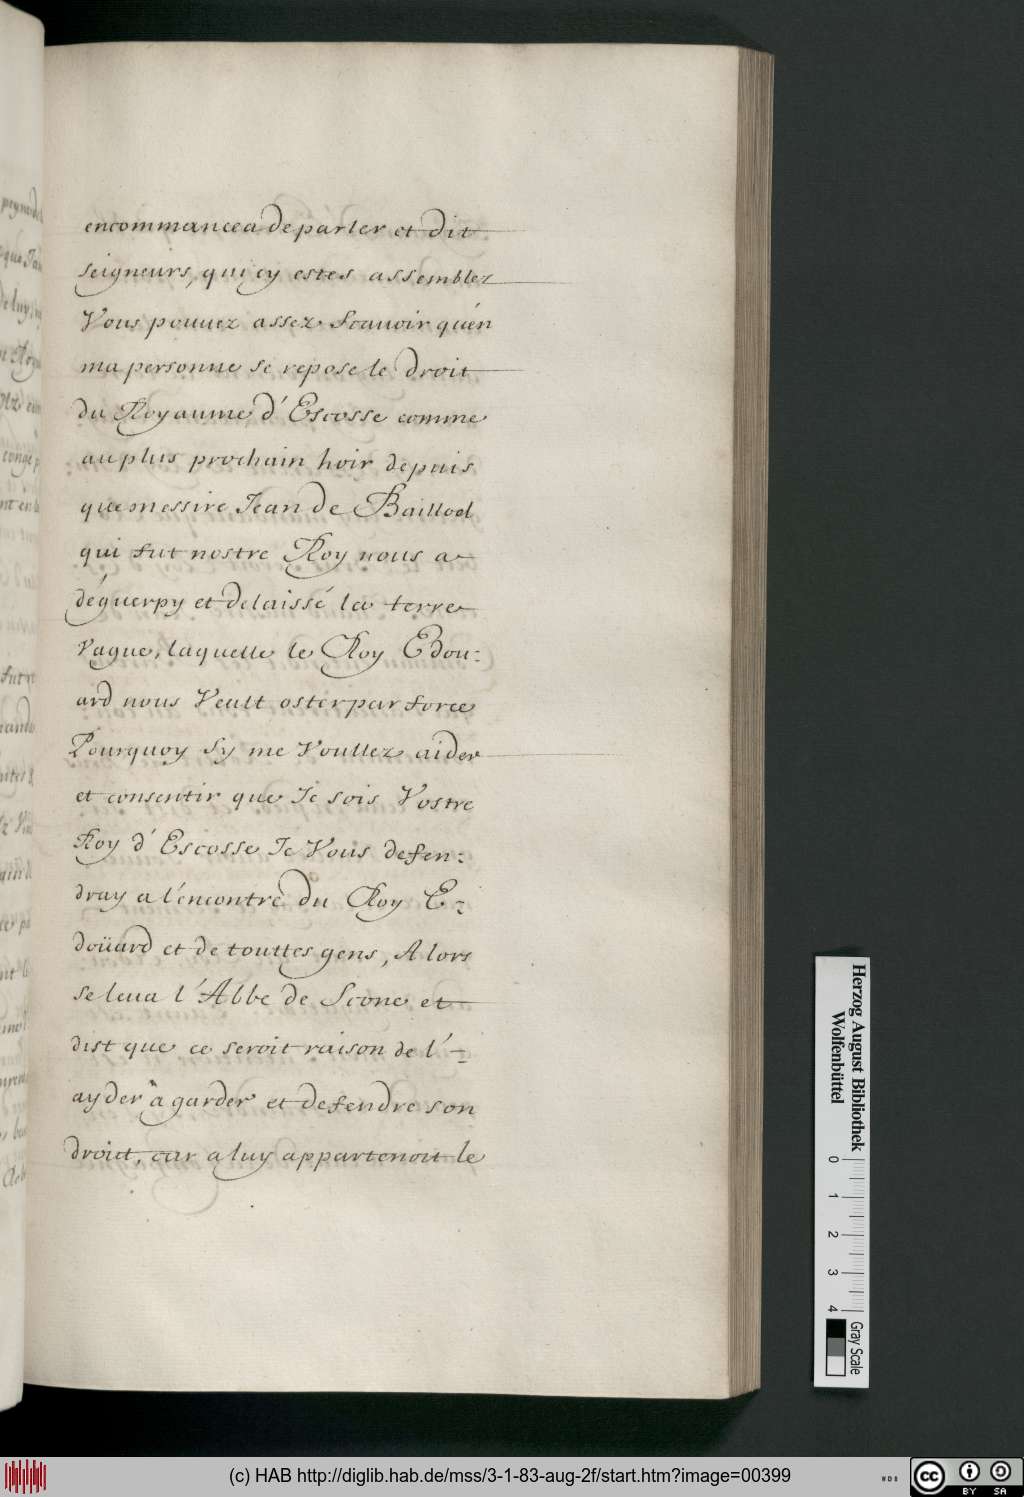 encommancea de parler et dit
seigneurs, qui cy estes assemblez
Vous pouuez assez scauoir quén
ma personne se repose le droit
du Royaume d'Escosse comme
au plus prochain hoir depuis
que messire Jean de Bailloel
qui fut nostre Roy nous a
déguerpy et delaissé la terre
vague, laquelle le Roy Edou:
ard nous Veult oster par force
Pourquoy sy me Voullez aider
et consentir que Je sois Vostre
Roy d'Escosse Je Vous defen:
dray a l'éncontre du Roy E:
doüard et de touttes gens, Alors
se leua l'Abbe de Scone et
dist que ce seroit raison de l'-
ayder à garder et defendre son
droict, car a luy appartenoit le
Herzog August Bibliothek
Wolfenbüttel
0 1 2 3 4
Gray Scale
(c) HAB http://diglib.hab.de/mss/3-1-83-aug-2f/start.htm?image=00399
cc BY SA